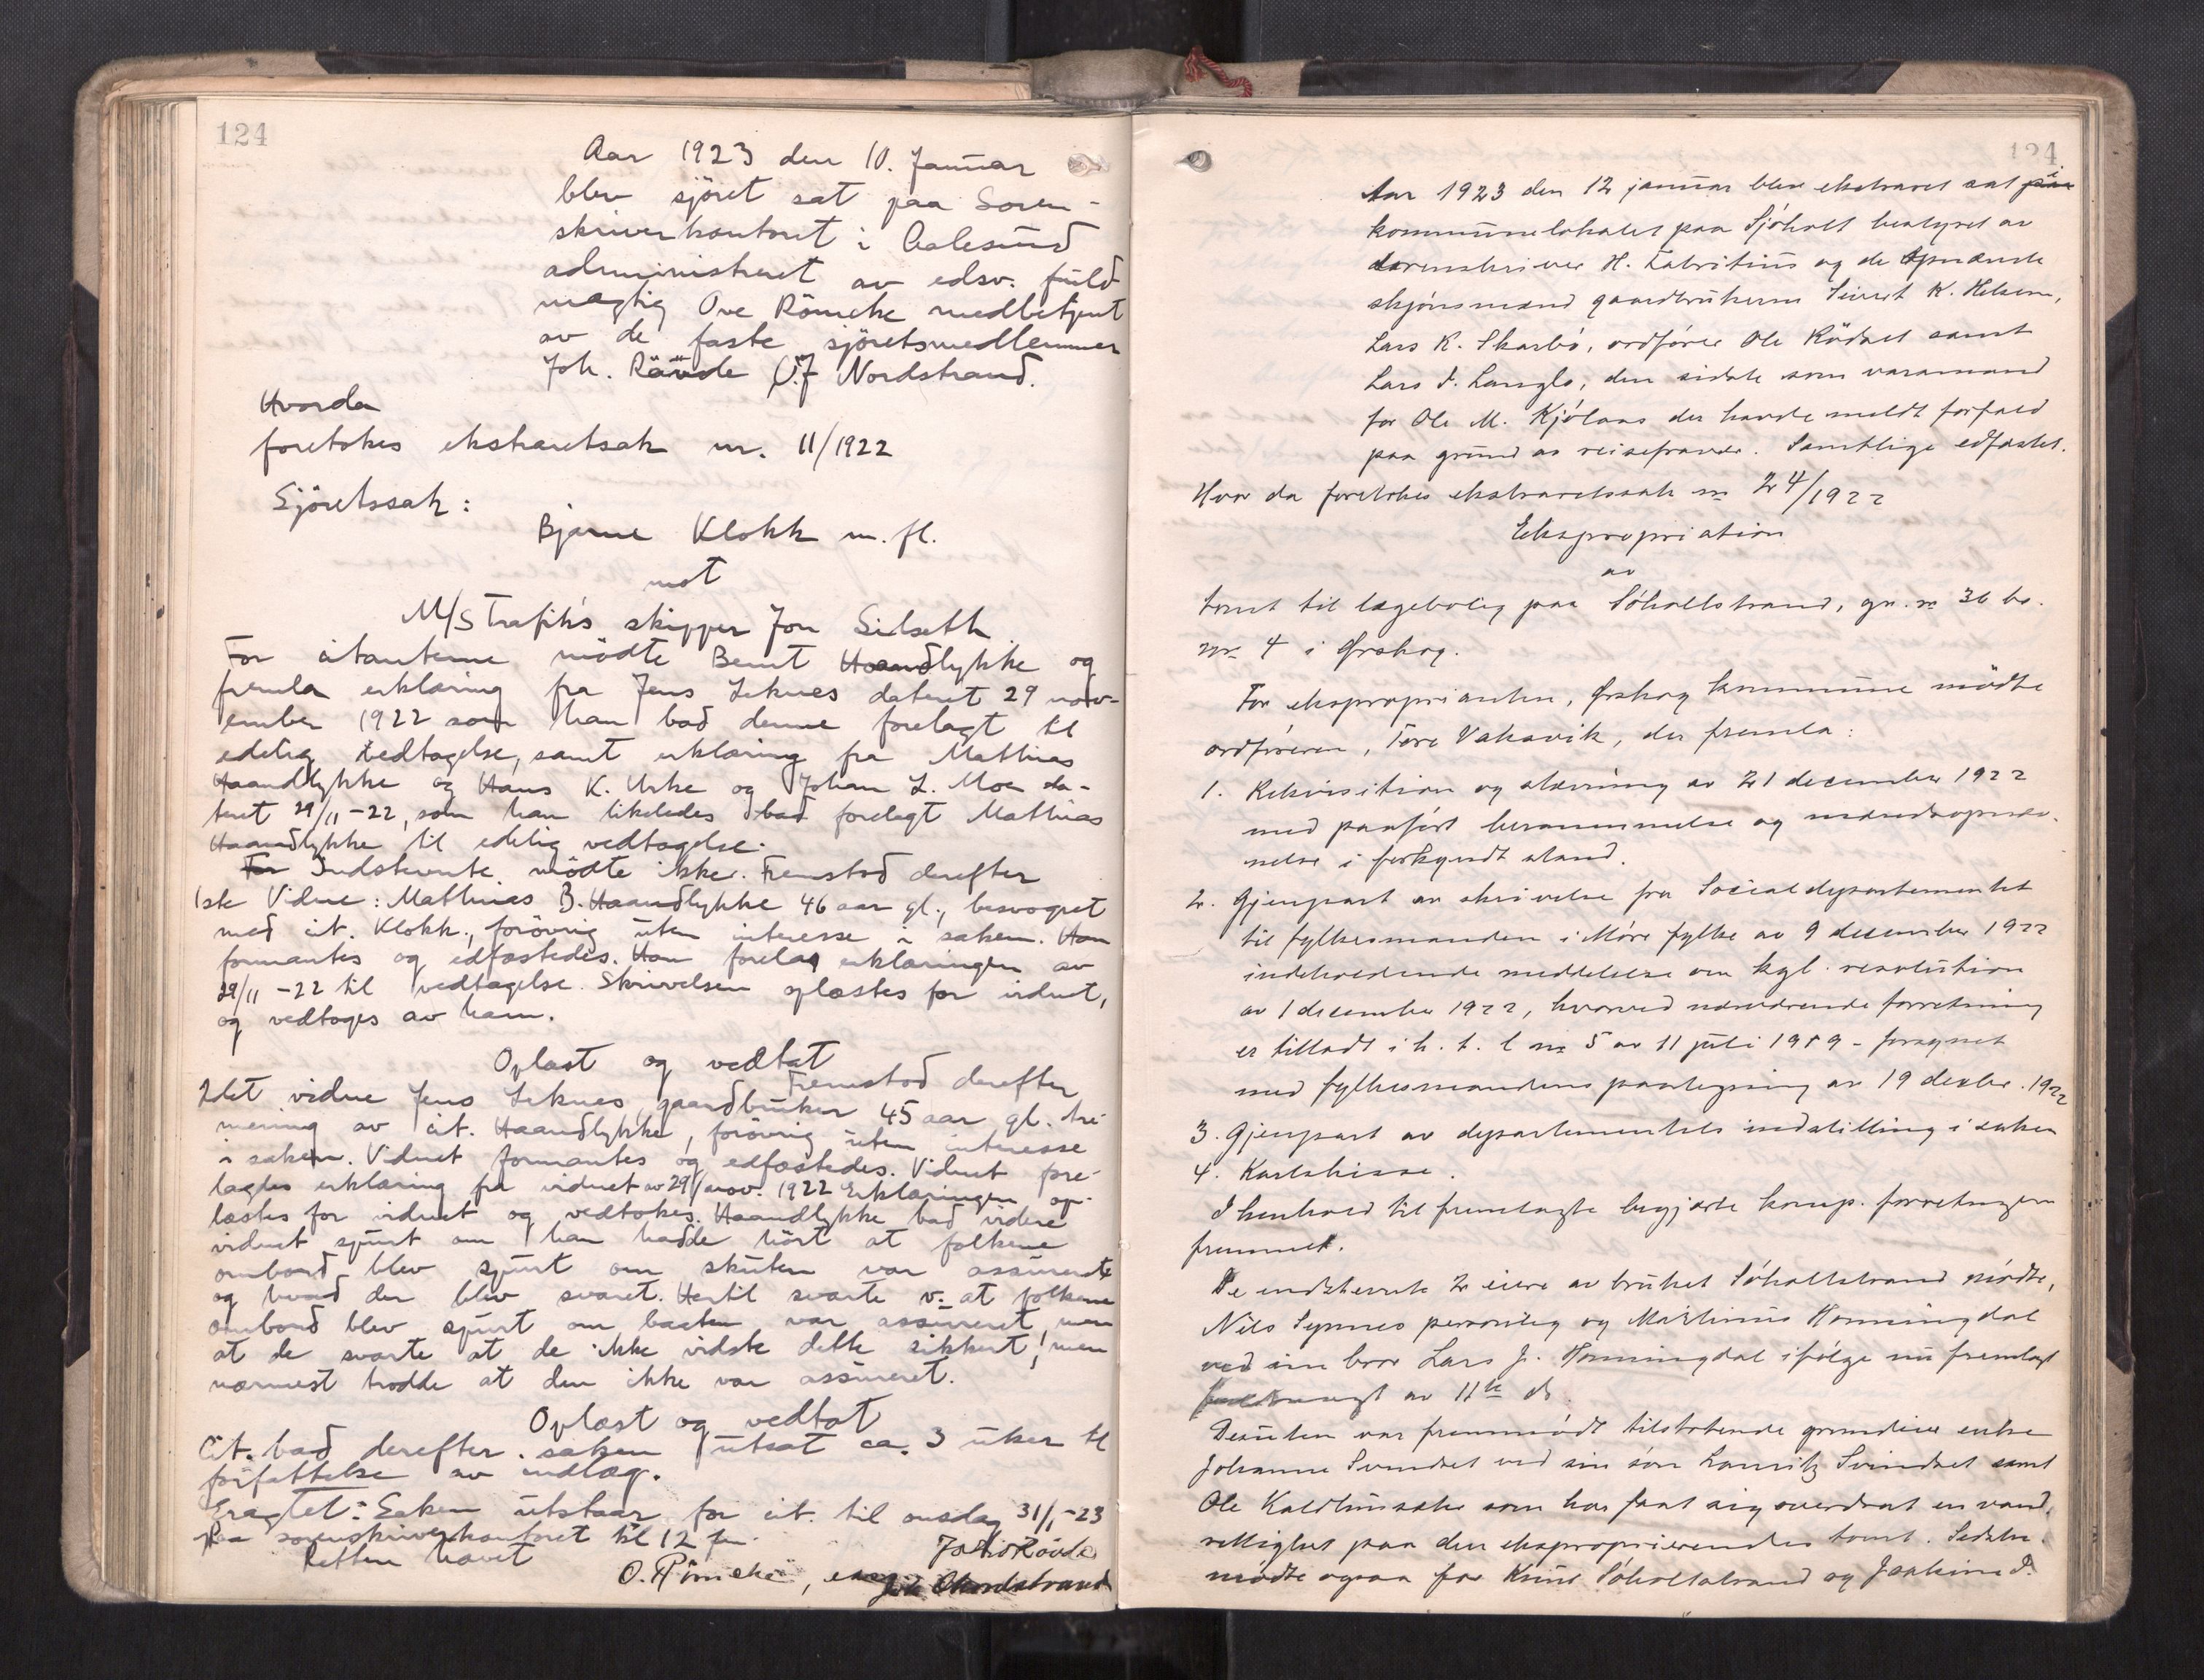 124
Aar 1923 den 10. Januar
blev sjöret sat paa Soren-
skriverkontoret i Aalesund
administreret av edsv. fuld-
mægtig Ove Römcke medbetjent
av de faste sjöretsmedlemmer
Joh. Rävde O.J Nordstrand.
Hvorda
foretokes ekstraretsak nr. 11/1922
Sjöretssak:
Bjarne Klokk m. fl.
mot
M/S Trafik's skipper Jon Silseth
For citanterne mödte Bernt Haandlykke og
fremla erklæring fra Jens Leknes dateret 29 nov-
ember 1922 som han bad denne forelagt til
edelig vedtagelse, samt erklæring fra Mathias
Haandlykke og Hans K. Urke og Johan L. Moe da-
teret 29/11-22, som han likeledes bad forelagt Mathias
Haandlykke til edelig vedtagelse.
For Indstevnte mödte ikke. Fremstod derefter
1ste Vidne: Mathias B. Haandlykke 46 aar gl., besvogret
med cit. Klokk, forövrig uten interesse i saken. Han
formantes og edfæstedes. Han forelaa erklæringen av
29/11-22 til vedtagelse. Skrivelsen oplæstes for vidnet,
og vedtoges av ham.
Oplæst og vedtat
Fremstod derefter
2det vidne Jens Leknes, gaardbruker 45 aar gl. tre-
mening av cit. Haandlykke, forövrig uten interesse
i saken. Vidnet formantes og edfæstedes. Vidnet fore-
lagdes erklæring fra vidnet av 29/nov. 1922 Erklæringen op-
læstes for vidnet og vedtokes. Haandlykke bad videre
vidnet spurt om han hadde hört at folkene
ombord blev spurt om skuten var assureret
og hvad der blev svaret. Hertil svarte v. at folkene
ombord blev spurt om baaten var assureret, men
at de svarte at de ikke vidste dette sikkert, men
nærmest trodde at den ikke var assureret.
Oplæst og vedtat
Cit. bad derefter saken utsat ca. 3 uker til
forfattelse av indlæg.
Eragtet: Saken utstaar for cit. til onsdag 31/1-23
paa sorenskriverkontoret kl 12 fm.
Retten hævet
O. Römcke, Joh. Rövde
Nordstrand
124
Aar 1923 den 12 januar blev ekstraret sat paa
kommunelokalet paa Sjöholt bestyret av
sorenskriver H. Fabritius og de opnævnte
skjönsmænd gaardbrukerne Sivert K. Helsem,
Lars K. Skarbö, ordförer Ole Rödset samt
Lars P. Langlo, den sidste som varamand
for Ole M. Kjölaas der havde meldt forfald
paa grund av reisefravær. Samtlige edfæstet.
Hvor da foretokes ekstraretssak nr 24/1922
Ekspropriation
av
tomt til lægebolig paa Söholtstrand, gn. nr 36 br.
nr 4 i Ørskog.
For eksproprianten, Ørskog kommune mödte
ordföreren, Tore Vaksvik, der fremla:
1. Rekvisition og stevning av 21 december 1922
med paaført berammelse og mændsopnæv-
nelse i forkyndt stand.
2. Gjenpart av skrivelse fra Socialdepartementet
til fylkesmanden i Möre fylke av 9 december 1922
indeholdende meddelelse om kgl. resolution
av 1 december 1922, hvorved nærværende forretning
er tilladt i h. t. l nr 5 av 11 juli 1919 - forsynet
med fylkesmandens paategning av 19 decbr. 1922
3. Gjenpart av departementets indstilling i saken
4. Kartskisse.
I henhold til fremlagte begjærte komp. forretningen
fremmet.
De indstevnte 2 eiere av bruket Söholtstrand mödte,
Nils Synnes personlig og Martinus Honningdal
ved sin bror Lars J. Honningdal ifölge nu fremlagt
fuldmagt av 11te ds.
Desuten var fremmödt tilstötende grundeier enke
Johanne Svindset ved sin sön Lauritz Svindset samt
Ole Kaldhussæter som har faat sig overdrat en vand-
rettighet paa den eksproprierendes tomt. Sedeln.
mödte ogsaa for Knut Söholtstrand og Joakim P.